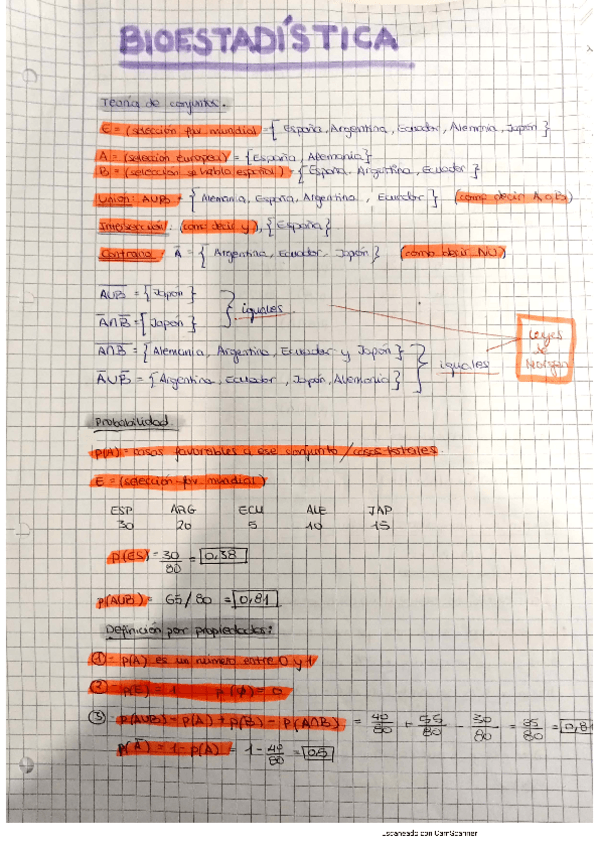 BIOESTADÍSTICA
Teoría de conjuntos.
E = (selección fav. mundial = { España, Argentina, Ecuador, Alemania, Japón }
A = (selección europea) = { España, Alemania }
B = (selección se habla español) = { España, Argentina, Ecuador }
Unión: A∪B = { Alemania, España, Argentina, Ecuador } (como decir A o B)
Intersección: (como decir y), { España }
Contrario: A̅ = { Argentina, Ecuador, Japón } (como decir NO)
A̅U̅B̅ = { Japón }
iguales
A̅∩B̅ = { Japón }
Leyes de Morgan
A̅∩̅B̅ = { Alemania, Argentina, Ecuador y Japón }
iguales
A̅∪B̅ = { Argentina, Ecuador, Japón, Alemania }
Probabilidad.
P(A) = casos favorables a ese conjunto / casos totales.
E = (selección fav. mundial)
ESP ARG ECU ALE JAP
30 20 5 10 15
P(ES) = 30/80 = 0,38
P(AUB) = 65/80 = 0,81
Definición por propiedades:
① - P(A) es un número entre 0 y 1
② - P(E) = 1 P(∅) = 0
③ - P(AUB) = P(A) + P(B) - P(A∩B) = 40/80 + 55/80 - 30/80 = /80 = 0,8
P(A̅) = 1 - P(A) = 1 - 40/80 = 0,5
Escaneado con CamScanner